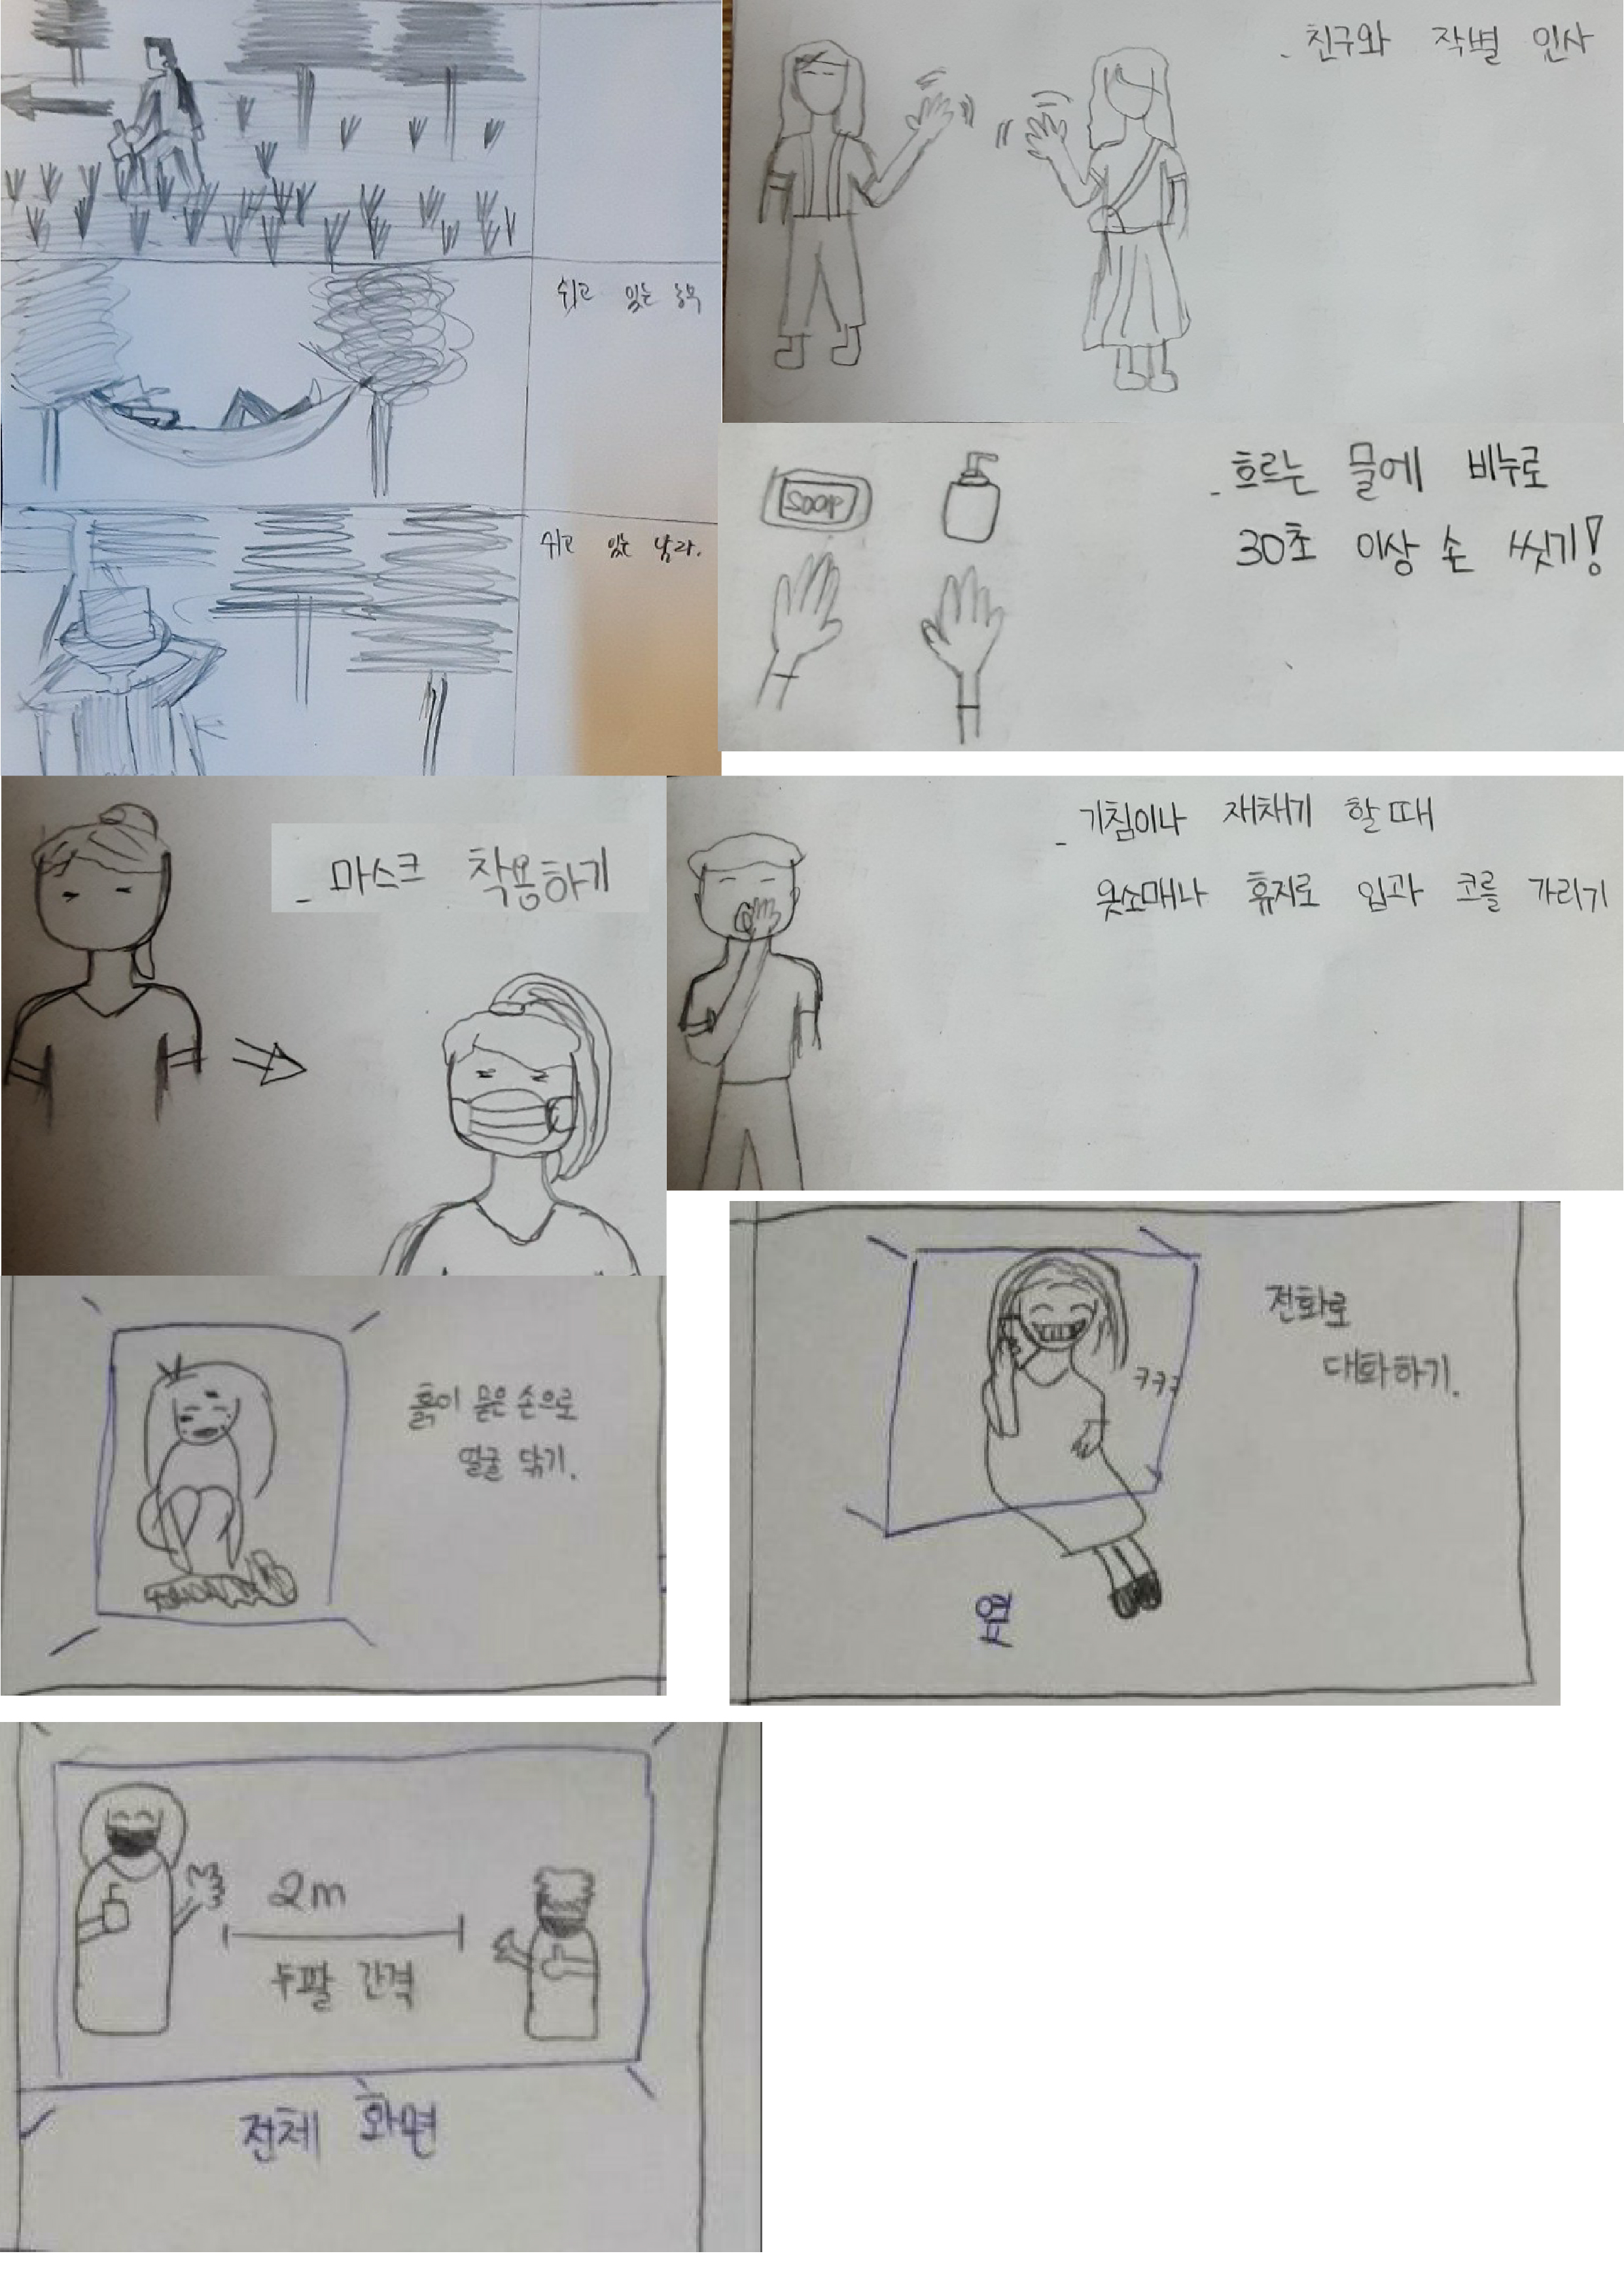 쉬고 있는 농부
쉬고 있는 남자.
- 친구와 작별 인사
SOAP
- 흐르는 물에 비누로
30초 이상 손 씻기!
- 마스크 착용하기
- 기침이나 재채기 할 때
옷소매나 휴지로 입과 코를 가리기
흙이 묻은 손으로
얼굴 닦기.
전화로
대화하기.
ㅋㅋㅋ
옆
2m
두팔 간격
전체 화면